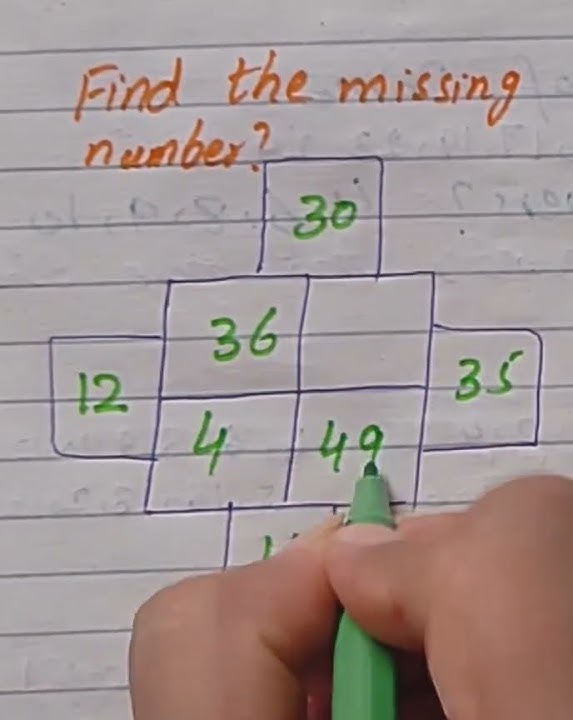 Find the missing
number?
30
36
12
35
4
49